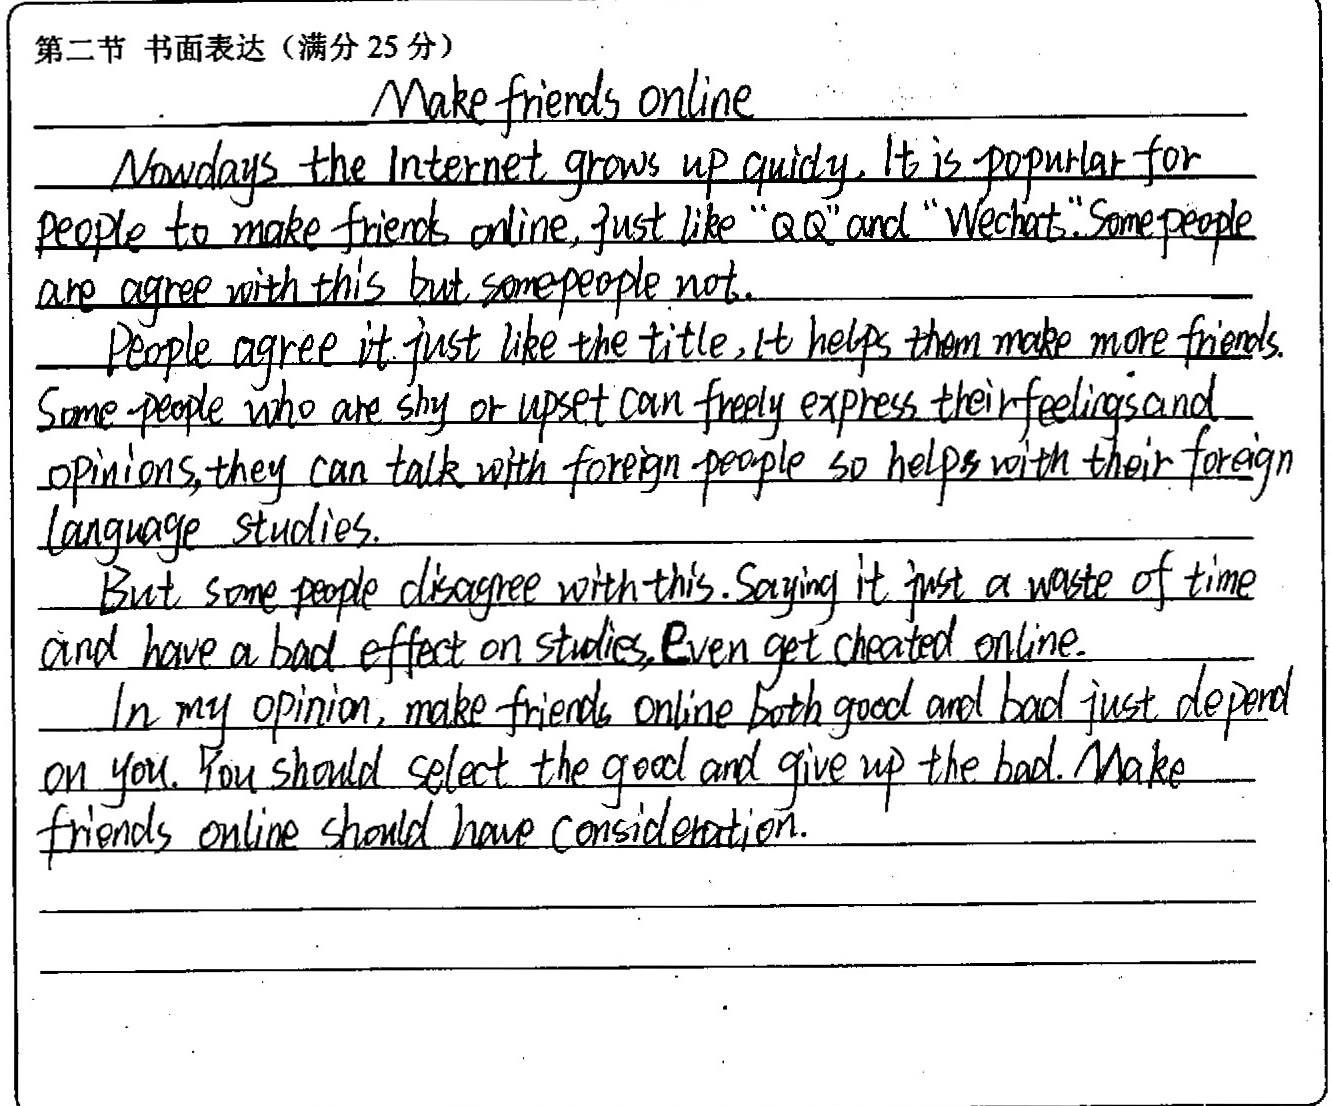 第二节 书面表达（满分 25 分）
Make friends online
Nowdays the Internet grows up quicly. It is popurlar for
people to make friends online, just like "QQ" and "Wechat". Some people
are agree with this but some people not.
People agree it just like the title, It helps them make more friends.
Some people who are shy or upset can freely express their feelings and
opinions, they can talk with foreign people so helps with their foreign
language studies.
But some people disagree with this. Saying it just a waste of time
and have a bad effect on studies, Even get cheated online.
In my opinion, make friends online both good and bad just depend
on you. You should select the good and give up the bad. Make
friends online should have consideration.